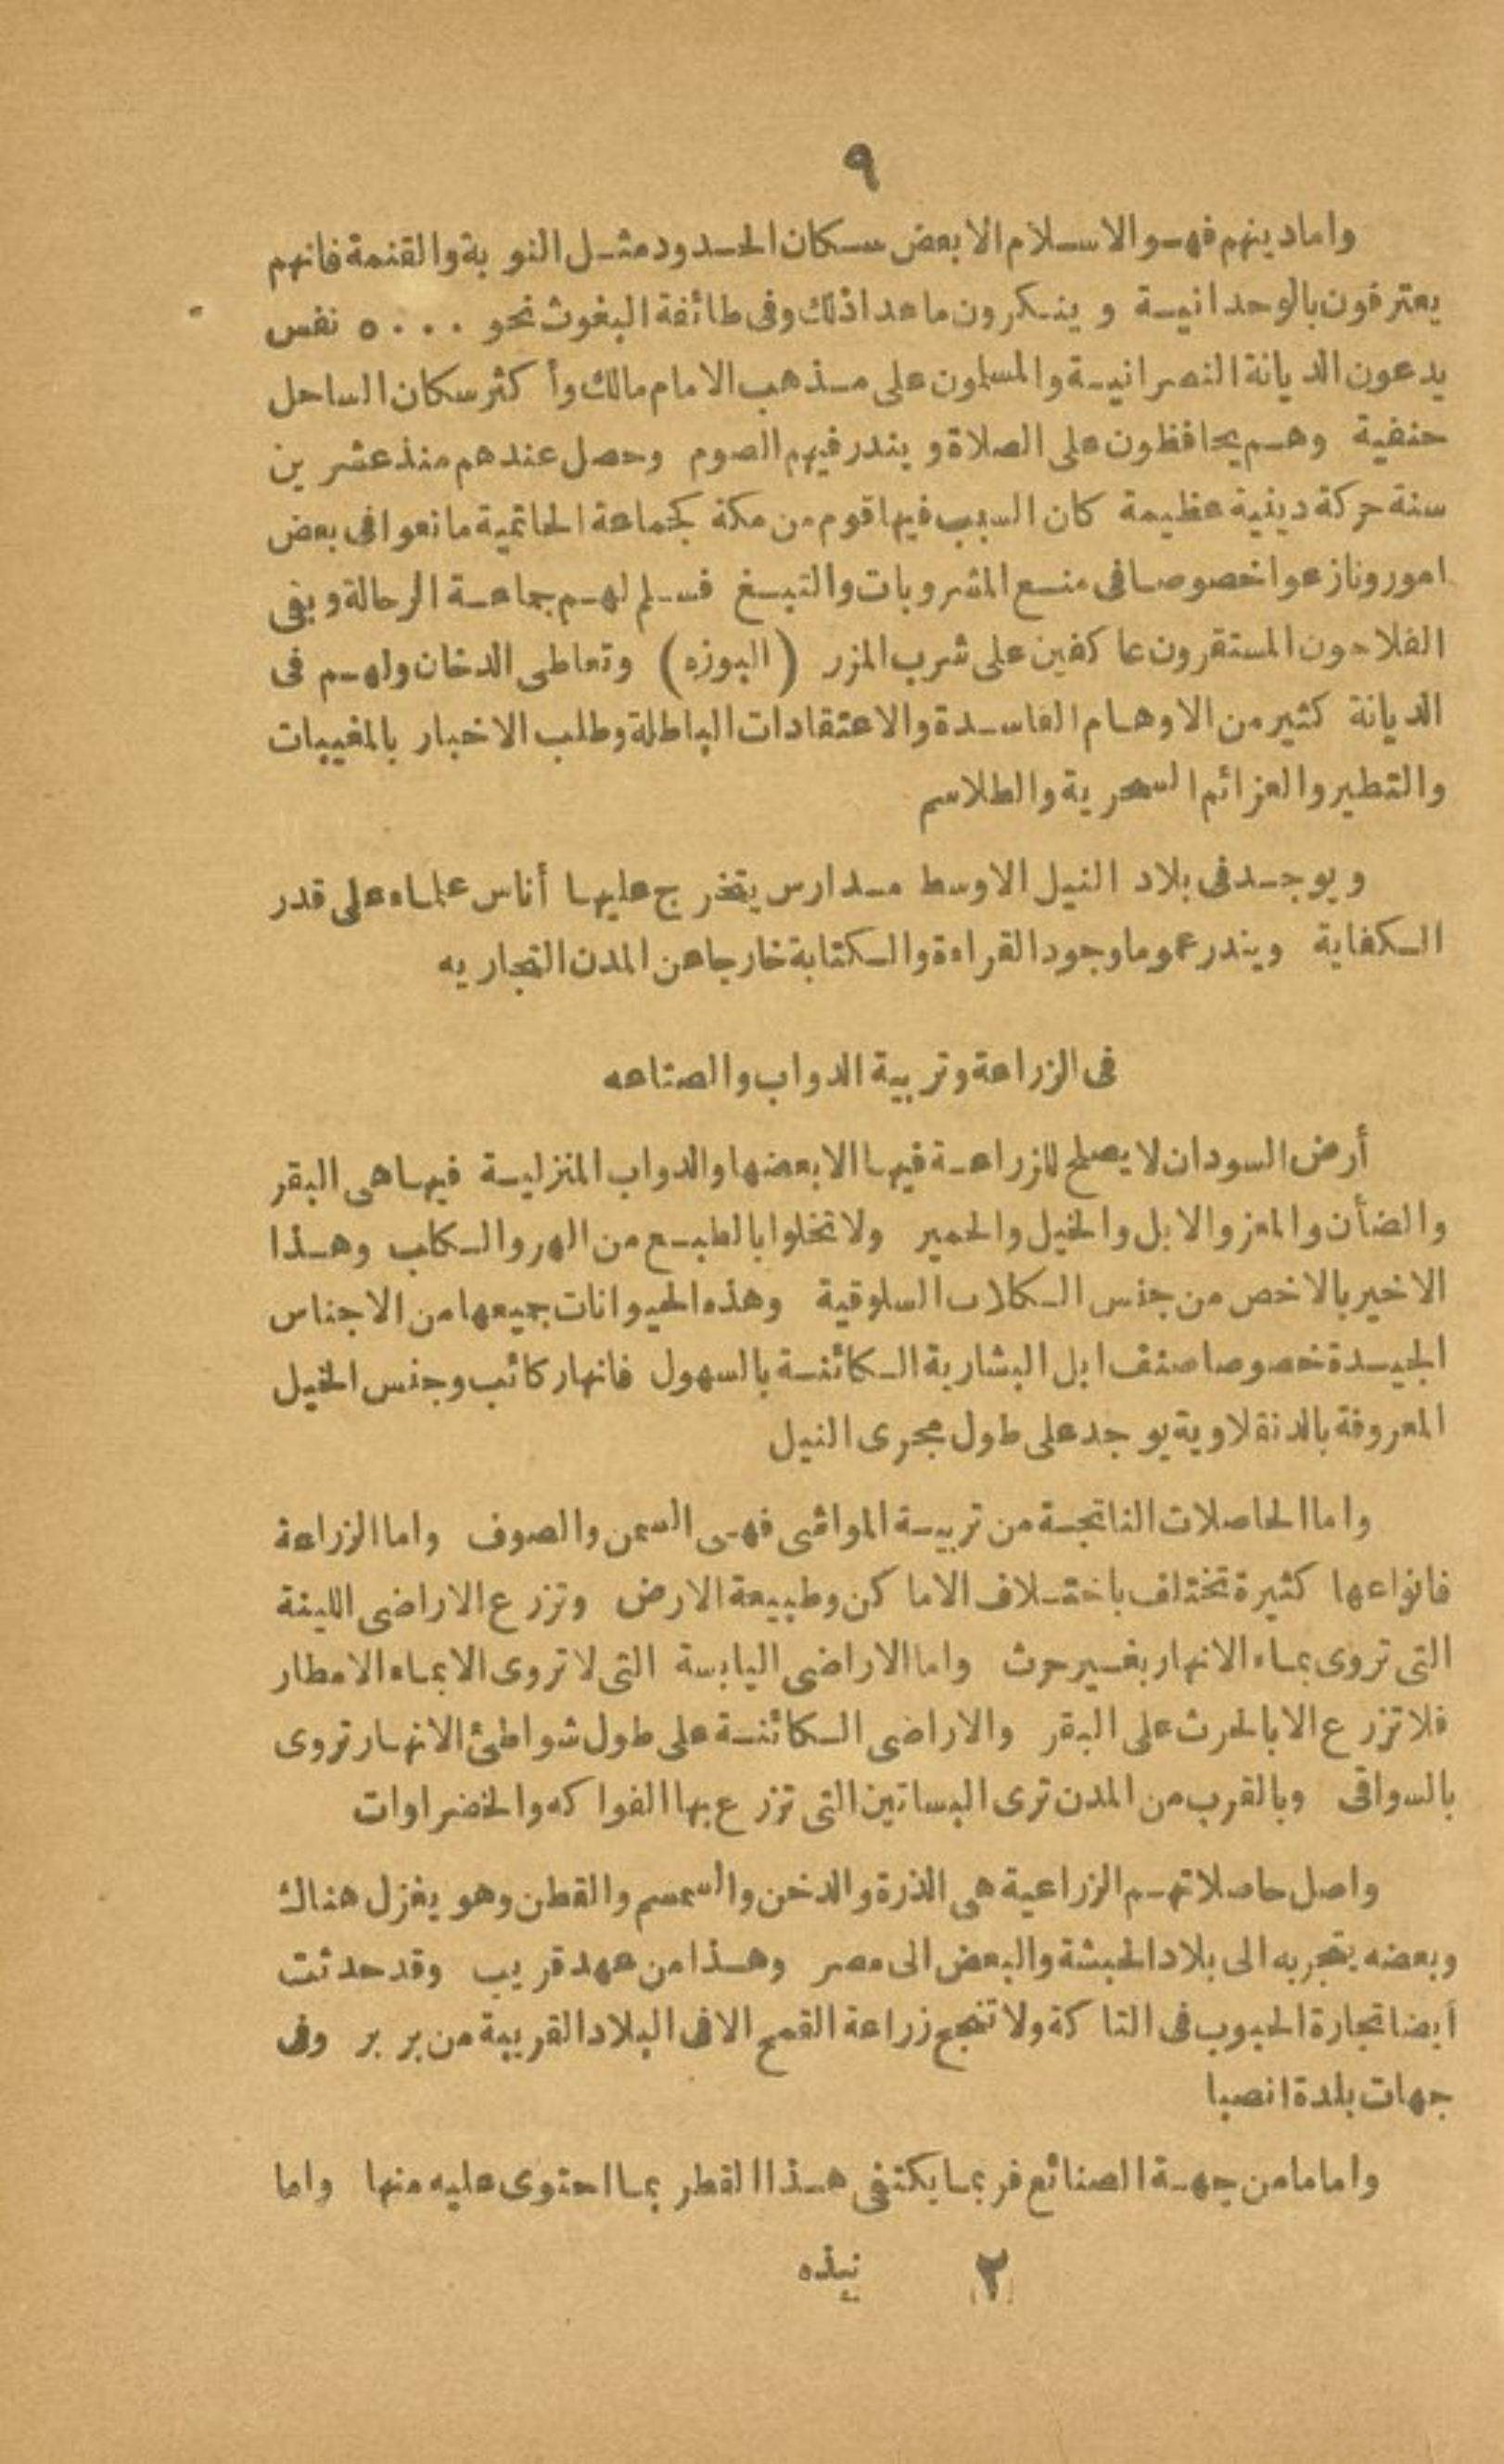 ٩
واما دينهم فهو الاسلام الا بعض سكان الحدود مثل النوبة والقنمة فانهم
يعترفون بالوحدانية وينكرون ما عدا ذلك وفى طائفة البغوث نحو ٥٠٠٠ نفس
يدعون الديانة النصرانية والمسلمون على مذهب الامام مالك وأكثر سكان الساحل
حنفية وهم يحافظون على الصلاة ويندر فيهم الصوم وحصل عندهم منذ عشرين
سنة حركة دينية عظيمة كان السبب فيها قوم من مكة كجماعة الحاتمية مانعوا فى بعض
امور ونازعوا خصوصا فى منع المشروبات والتبغ فسلم لهم جماعة الرحالة وبقى
الفلاحون المستقرون عاكفين على شرب المزر (البوزه) وتعاطى الدخان ولهم فى
الديانة كثير من الاوهام الفاسدة والاعتقادات الباطلة وطلب الاخبار بالمغيبات
والتطير والعزائم السحرية والطلاسم
ويوجد فى بلاد النيل الاوسط مدارس يتخرج عليها أناس علماء على قدر
الكفاية ويندر عموما وجود القراءة والكتابة خارجا عن المدن التجاريه
فى الزراعة وتربية الدواب والصناعه
أرض السودان لا يصلح للزراعة فيها الا بعضها والدواب المنزلية فيها هى البقر
والضأن والمعز والابل والخيل والحمير ولا تخلوا بالطبع من الهر والكلب وهذا
الاخير بالاخص من جنس الكلاب السلوقية وهذه الحيوانات جميعها من الاجناس
الجيدة خصوصا صنف ابل البشارية الكائنة بالسهول فانها ركائب وجنس الخيل
المعروفة بالدنقلاوية يوجد على طول مجرى النيل
واما الحاصلات الناتجة من تربية المواشى فهى السمن والصوف واما الزراعة
فانواعها كثيرة تختلف باختلاف الاماكن وطبيعة الارض وتزرع الاراضى اللينة
التى تروى بماء الانهار بغير حرث واما الاراضى اليابسة التى لا تروى الا بماء الامطار
فلا تزرع الا بالحرث على البقر والاراضى الكائنة على طول شواطئ الانهار تروى
بالسواقى وبالقرب من المدن ترى البساتين التى تزرع بها الفواكه والخضراوات
واصل حاصلاتهم الزراعية هى الذرة والدخن والسمسم والقطن وهو يغزل هناك
وبعضه يتجر به الى بلاد الحبشة والبعض الى مصر وهذا من عهد قريب وقد حدثت
أيضا تجارة الحبوب فى التاكة ولا تنجح زراعة القمح الا فى البلاد القريبة من بربر وفى
جهات بلدة انصبا
واما ما من جهة الصنائع فربما يكتفى هذا القطر بما احتوى عليه منها واما
٢ نبذه